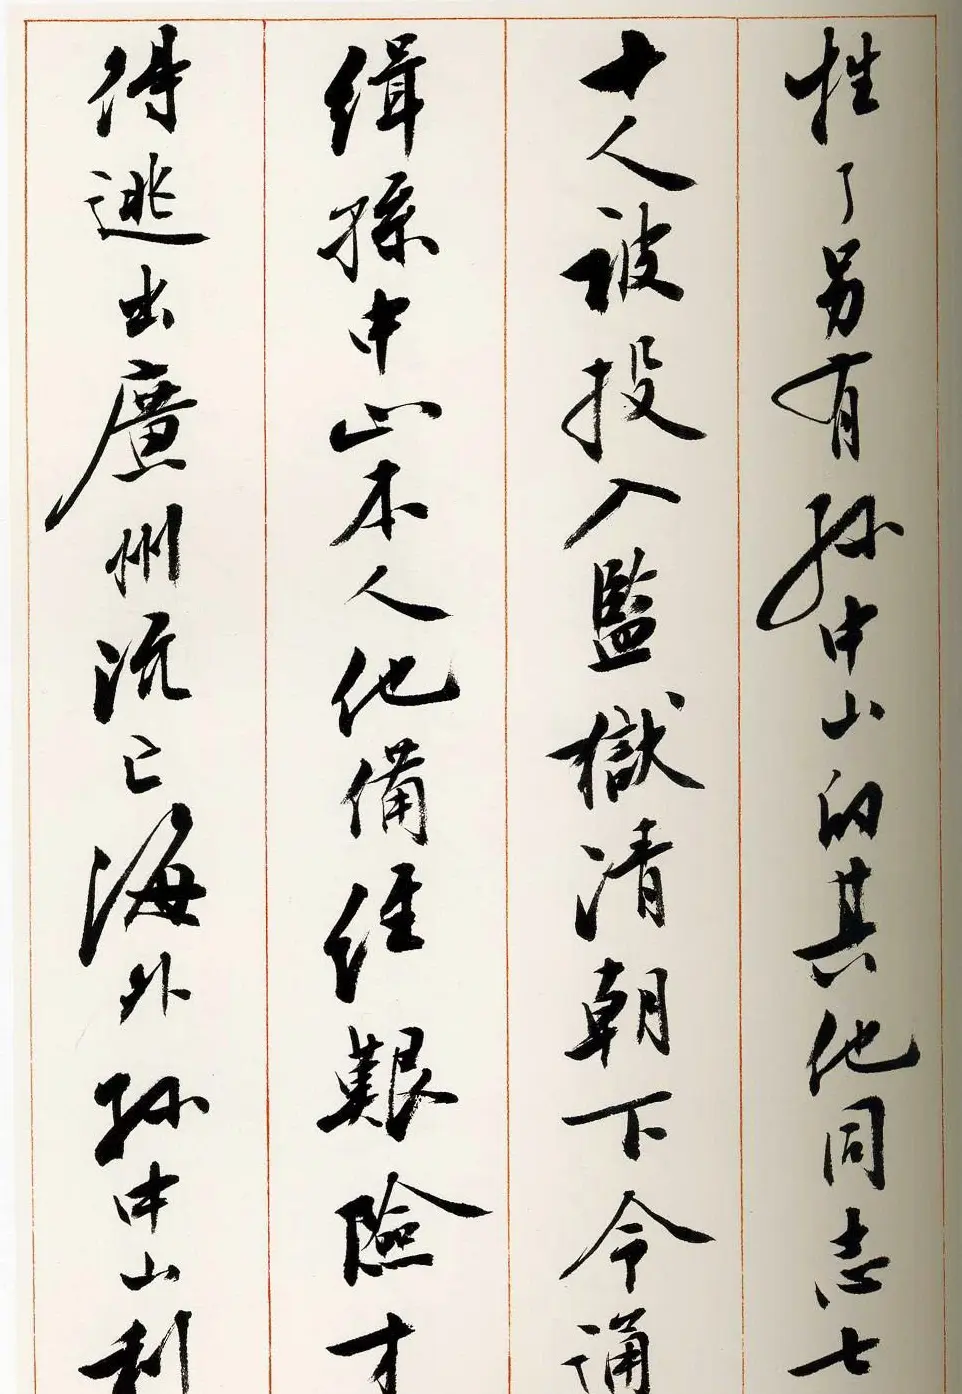 牲了另有孙中山的其他同志七
十人被投入監獄清朝下令通
缉孫中山本人他備经艱險才
得逃出廣州流亡海外孙中山利